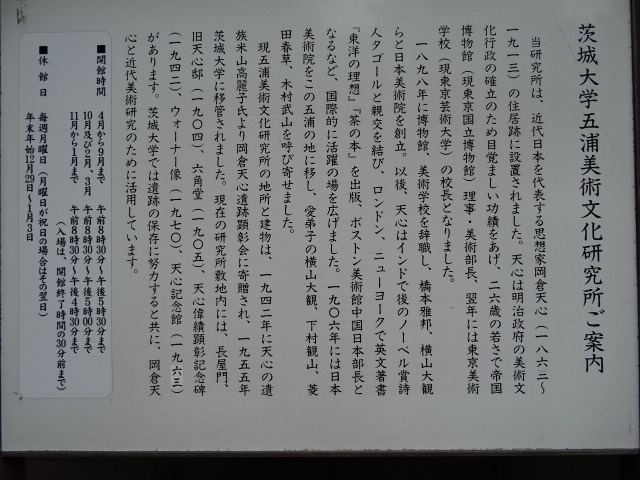 茨城大学五浦美術文化研究所ご案内
当研究所は、近代日本を代表する思想家岡倉天心（一八六二～
一九一三）の住居跡に設置されました。天心は明治政府の美術文
化行政の確立のため目覚ましい功績をあげ、二六歳の若さで帝国
博物館（現東京国立博物館）理事・美術部長、翌年には東京美術
学校（現東京芸術大学）の校長となりました。
一八九八年に博物館、美術学校を辞職し、橋本雅邦、横山大観
らと日本美術院を創立。以後、天心はインドで後のノーベル賞詩
人タゴールと親交を結び、ロンドン、ニューヨークで英文著書
『東洋の理想』『茶の本』を出版、ボストン美術館中国日本部長と
なるなど、国際的に活躍の場を広げました。一九〇六年には日本
美術院をこの五浦の地に移し、愛弟子の横山大観、下村観山、菱
田春草、木村武山を呼び寄せました。
現五浦美術文化研究所の地所と建物は、一九四二年に天心の遺
族米山高麗子氏より岡倉天心遺蹟顕彰会に寄贈され、一九五五年
茨城大学に移管されました。現在の研究所敷地内には、長屋門、
旧天心邸（一九〇四）、六角堂（一九〇五）、天心偉績顕彰記念碑
（一九四二）、ウォーナー像（一九七〇）、天心記念館（一九六三）
があります。茨城大学では遺蹟の保存に努力すると共に、岡倉天
心と近代美術研究のために活用しています。
■開館時間 4月から9月まで 午前8時30分～午後5時30分まで
10月及び2月、3月 午前8時30分～午後5時00分まで
11月から1月まで 午前8時30分～午後4時30分まで
（入場は、開館終了時間の30分前まで）
■休館日 毎週月曜日（月曜日が祝日の場合はその翌日）
年末年始12月29日～1月3日